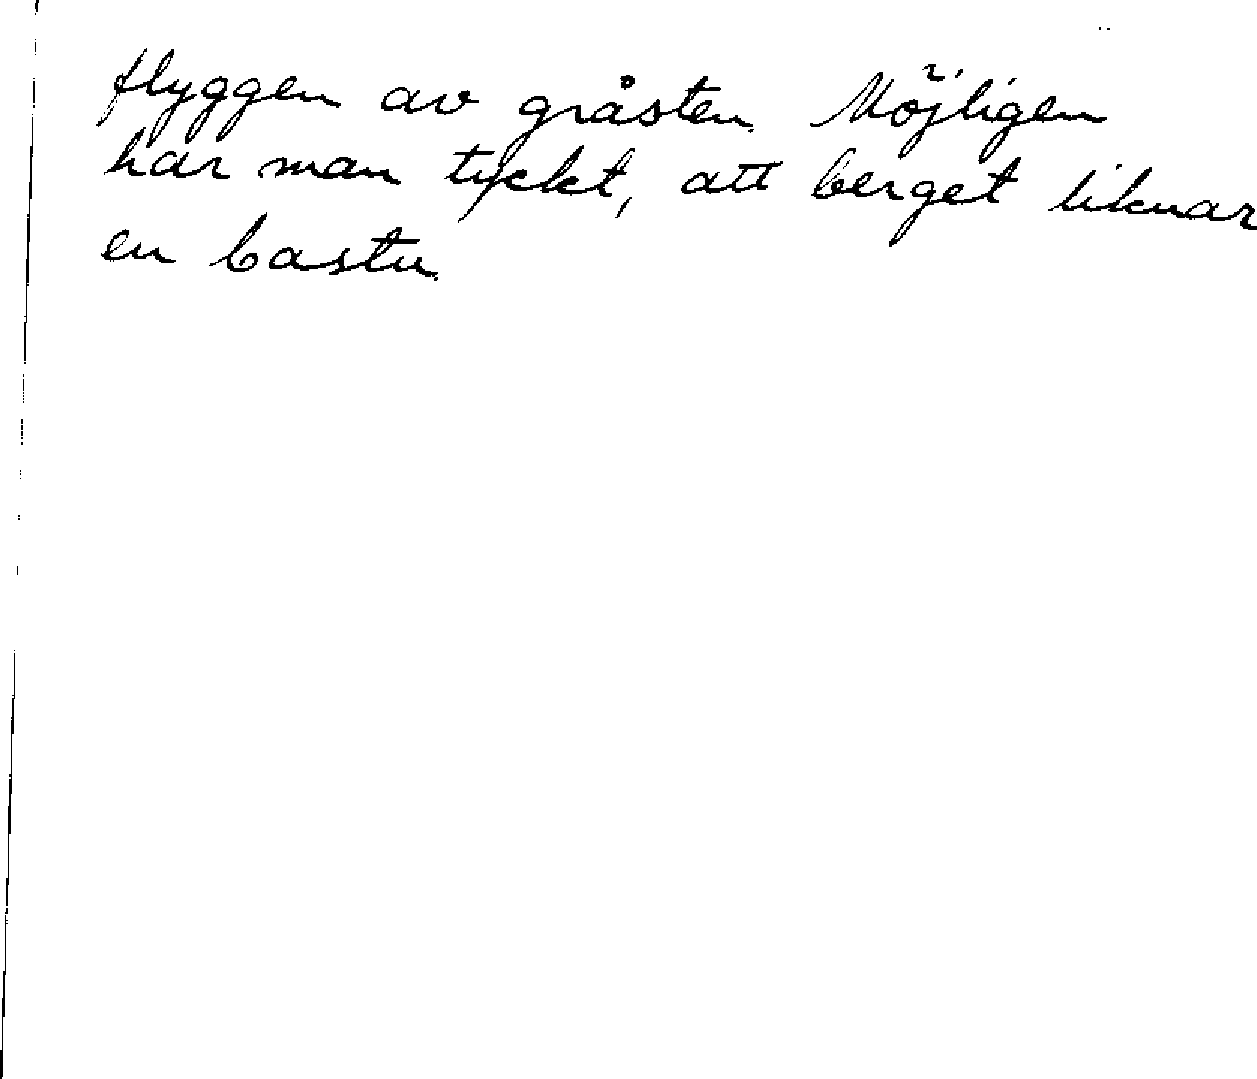 flyggen av gråsten. Möjligen
har man tyckt, att berget liknar
en bastu.